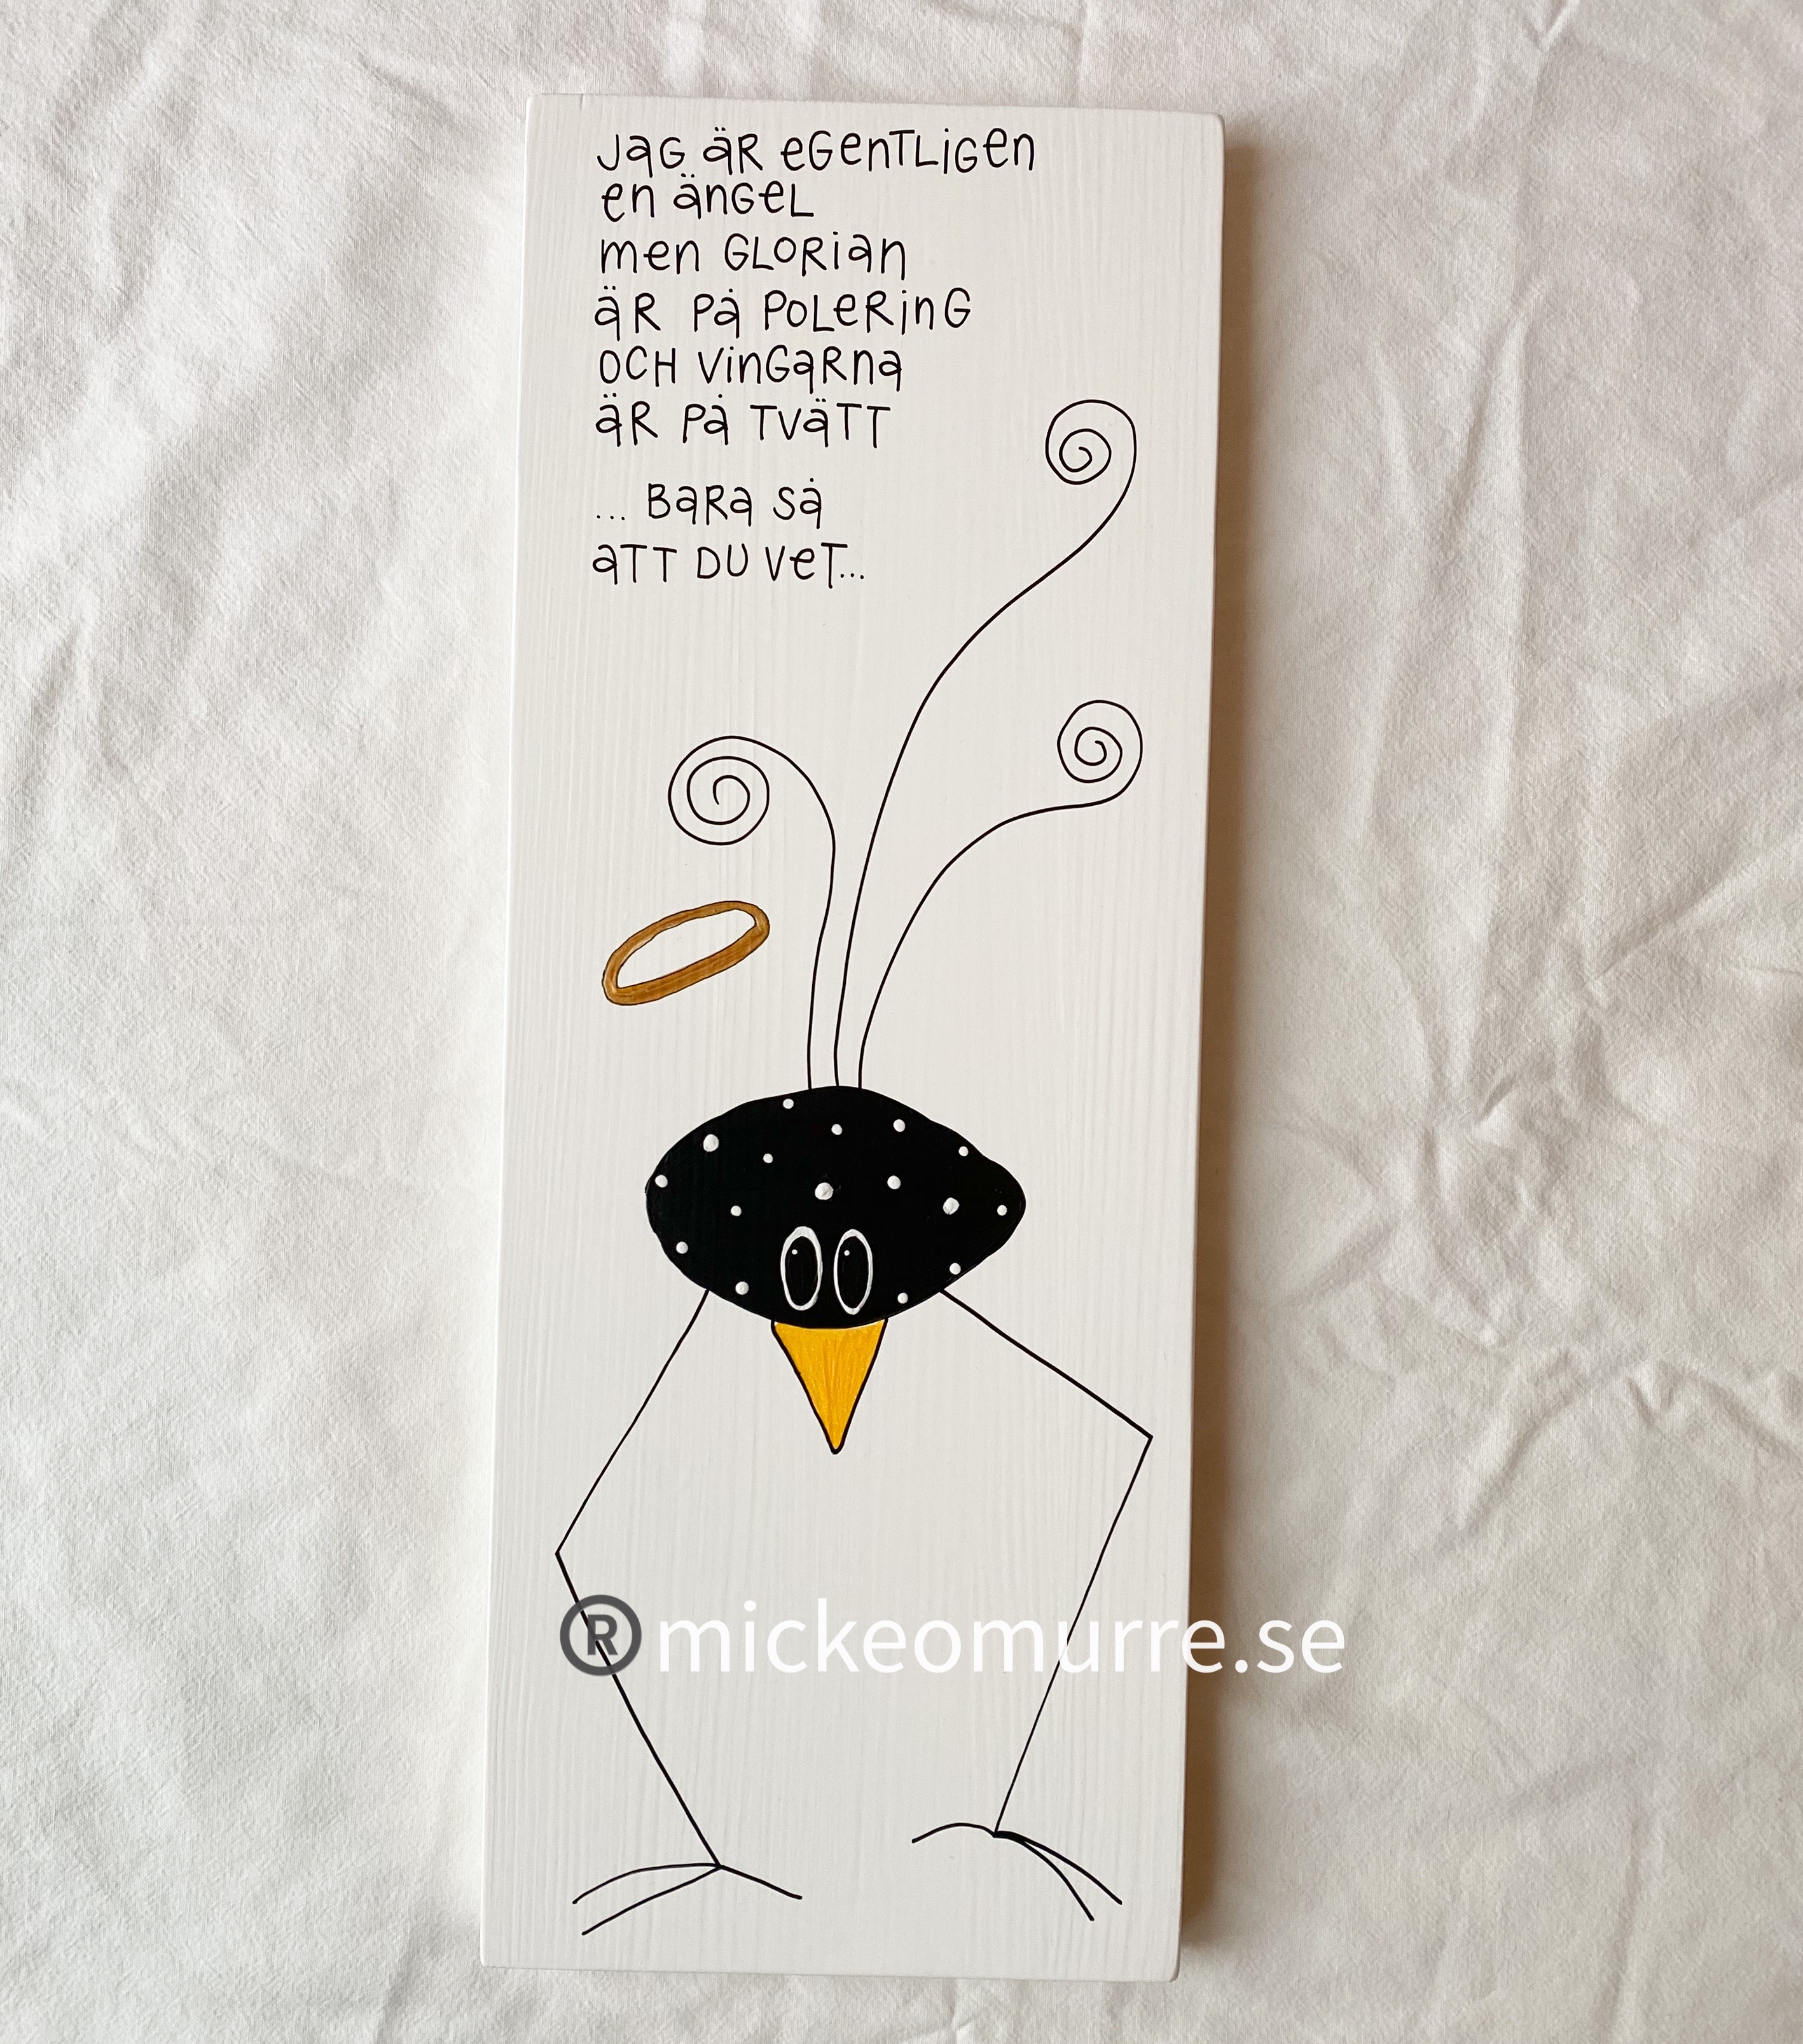 Jag är egentligen
en ängel
men glorian
är på polering
och vingarna
är på tvätt
... bara så
att du vet...
®mickeomurre.se